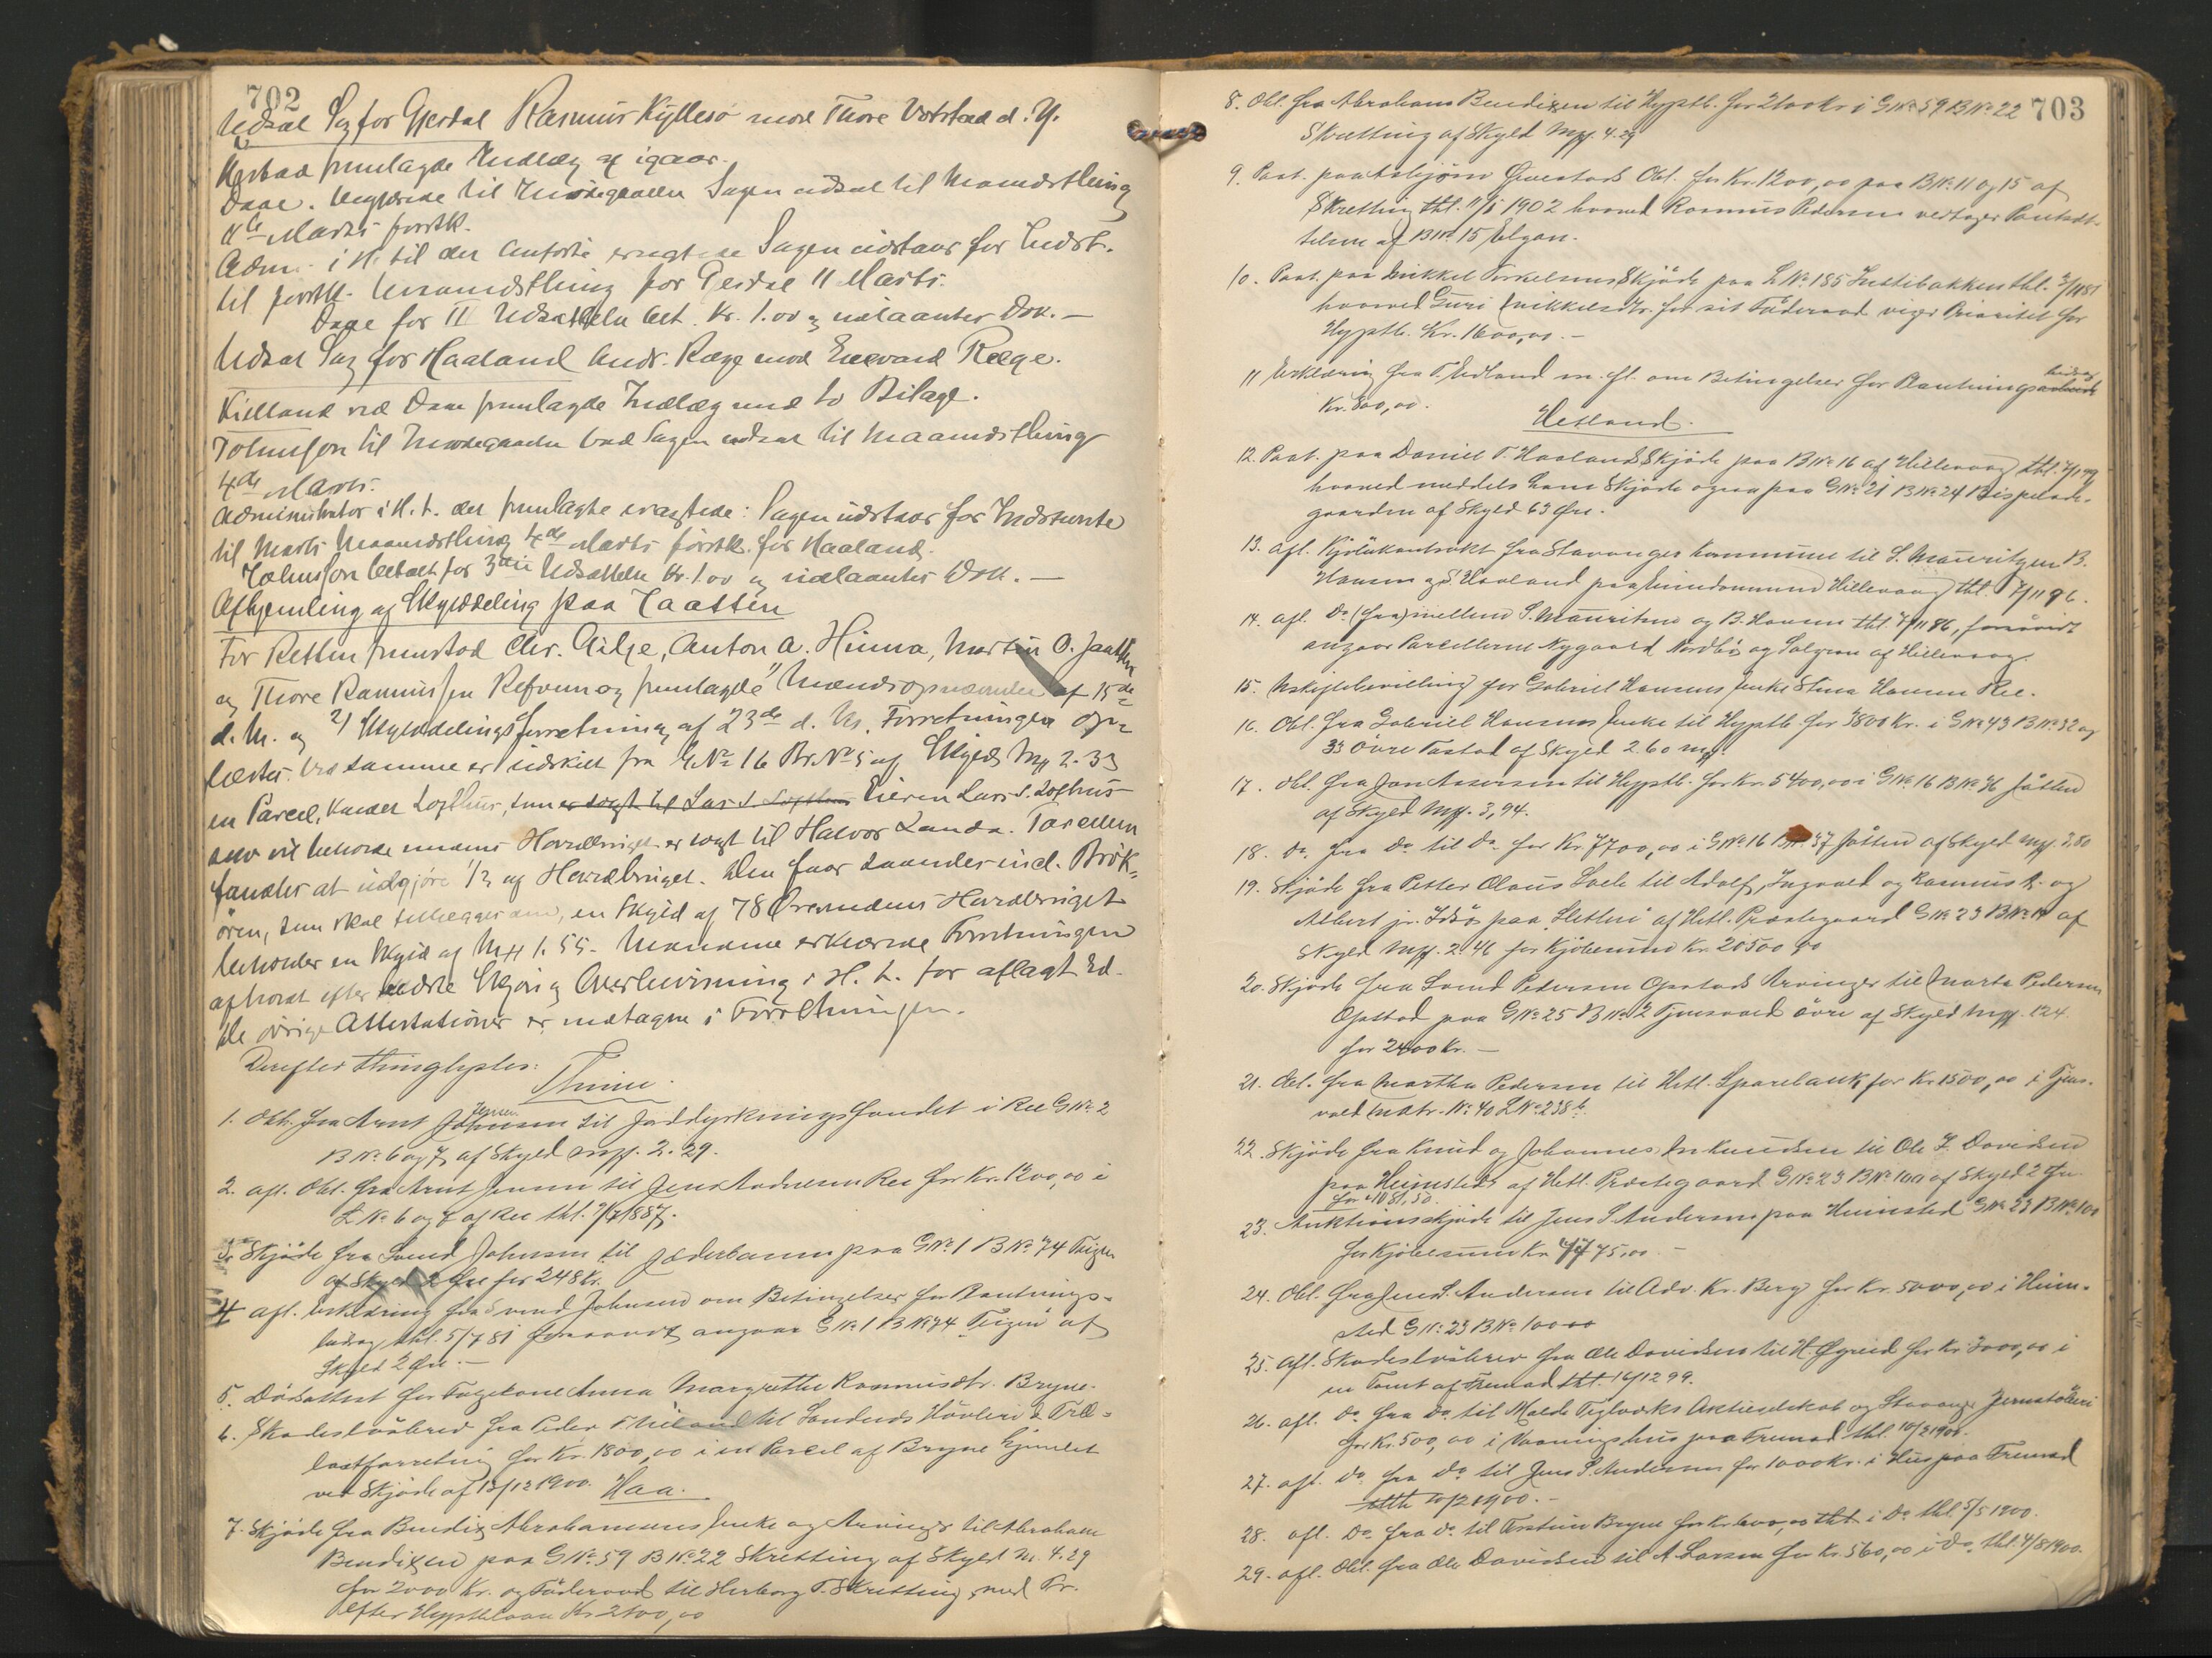 702
Udsat Sag for Gjesdal Rasmus Kyllesø mod Thore Vatstad d. Y.
fremlagde Indlæg af igaar.
Daae. til Imødegaaelse Sagen udsat til Maanedsthing
11te Marts førstk.
Adm. i H. til det anførte eragtede Sagen udstaar for Indst.
til førstk. Maanedsthing for Gjesdal 11 Marts.
Daae for II Udsættelse bet. Kr. 1.00 og udlaantes Dok. —
Udsat Sag for Haaland Andr. Ræge mod Enevald Ræge.
Kielland ved Daae fremlagde Indlæg med to Bilage.
Tolmsson til Imødegaaelse bad Sagen udsat til Maanedsthing
4de Marts.
Administrator i H. t. det fremlagte eragtede: Sagen udstaar for Indstevnte
til Marts Maanedsthing 4de Marts førstk. for Haaland.
betalt for 3die Udsættelse Kr. 1.00 og udlaantes Dok. —
Afhjemling af Skylddeling paa Jaatten
For Retten fremstod Chr. Gilje, Anton A. Hinna, Martin O. Jaatten
og Thore Rasmussen Refvem og fremlagde 1) Mændsopnævnelse af 15de
d. M. og 2) Skylddelingsforretning af 23de d. M. Forretningen op-
læstes. Ved samme er udskilt fra G.No 16 Br.No 5 af Skyld Mk 2.33
en Parcel, kaldet Lofthus, som er solgt til Lars S. Lofthus Eieren Lars S. Lofthus
selv vil beholde medens Hovedbruget er solgt til Halvor Landa. Parcellen
fandtes at udgjøre 1/3 af Hovedbruget. Den faar saaledes incl. Brøk-
øren, som skal tillægges den, en Skyld af 78 Øre medens Hovedbruget
beholder en Skyld af Mk 1.55. Mændene erklærede Forretningen
afholdt efter bedste Skjøn og Overbevisning i H. t. før aflagt Ed.
De øvrige Attestationer er medtagne i Forretningen.
Derefter thinglystes:
Thime.
1. Obl. fra Arnt Johnsen Jensen til Jorddyrkningsfondet i Ree GNo 2
BNo 6 og 7 af Skyld Mk. 2.29.
2. afl. Obl. fra Arnt Jensen til Jens Andersen Ree for Kr. 1200,00 i
LNo 6 og 7 af Ree thl. 7/7 1887.
3. Skjøde fra Svend Johnsen til Jæderbanen paa GNo 1 BNo 74 Teigen
af Skyld 2 Øre for 248 Kr.
4 afl. Erklæring fra Svend Johnsen om Betingelser for Plantnings-
bidrag thl. 5/7 81 forsaavidt angaar GNo 1 BNo 74 Teigen af
Skyld 2 Øre. —
5. Dødsattest for Fogekone Anna Margrethe Rasmusdtr. Bryne.
6. Skadesløsbrev fra Peder T. til Sandnes Høvleri & Træ-
lastforretning for Kr. 1800,00 i en Parcel af Bryne hjemlet
ved Skjøde af 13/12 1900.
Haa.
7. Skjøde fra Bendix Abrahamsens Enke og Arvinger til Abraham
Bendixen paa GNo 59 BNo 22 Skretting af Skyld M. 4.29
for 2000 Kr. og Føderaad til Herborg T. Skretting, med Pr.
efter Hypothlaan Kr. 2100,00
703
8. Obl. fra Abraham Bendixen til Hypthb. for 2100 Kr i GNo 59 BNo 22
Skretting af Skyld Mk. 4.29
9. Paat. paa Asbjørn Obl. for Kr. 1200,00 paa BNo 11 og 15 af
Skretting thl. 11/5 1902 hvorved Rasmus Pedersen vedtager Pantsæt-
telsen af BNo 15 Elgan.
10. Paat. paa Mikkel Torkelsens Skjøde paa LNo 185 thl. 3/11 81
hvorved Guri Mikkelsdtr. for sit Føderaad viger Prioritet for
Hypthb. Kr. 1600,00. —
11 Erklæring fra T. Udland m. fl. om Betingelser for Plantningsarbeide bidrag
Kr. 800,00.
Hetland.
12. Paat. paa Daniel T. Haalands Skjøde paa BNo 16 af Hillevaag thl. 7/1 99
hvorved meddels ham Skjøde ogsaa paa GNo 21 BNo 24 Bispelade-
gaarden af Skyld 63 Øre.
13. afl. Kjøbekontrakt fra Stavanger Kommune til S. Mauritzen B.
Hansen og S. Haaland paa Eiendommen Hillevaag thl. 7/11 96.
14. afl. Do (fra) mellem S. Mauritzen og B. Hansen thl. 7/11 96, forsaavidt
angaar Parcellerne Nygaard Nordbø og Solgren af Hillevaag.
15. Uskiftebevilling for Gabriel Hansens Enke Stina Hansen Ree.
16. Obl. fra Gabriel Hansens Enke til Hypthb. for 3800 Kr. i GNo 43 BNo 32 og
33 Øvre Tastad af Skyld 2.60 Mk.
17. Obl. fra Jon Assersen til Hypthb. for Kr. 5400,00 i GNo 16 BNo 36 Jåtten
af Skyld Mk. 3,94.
18. Do fra Do til Do for Kr. 7700,00 i GNo 16 BNo 37 Jåtten af Skyld Mk. 3,80
19. Skjøde fra Petter Olaus Soele til Adolf, Ingvald og Rasmus A. og
Albert jr. Idsø paa "Sletten" af Hetl. Præstegaard GNo 23 BNo 14 af
Skyld Mk. 2.46 for Kjøbesum Kr. 20500,00
20. Skjøde fra Svend Pedersen Opstads Arvinger til Marta Pedersen
Opstad paa GNo 25 BNo 2 Tjensvold øvre af Skyld Mk. 1.24.
for 2400 Kr. —
21. Obl. fra Martha Pedersen til Hetl. Sparebank for Kr. 1500,00 i Tjens-
vold Matr. No 40 LNo 238 b.
22. Skjøde fra Knud og Johannes Knudsen til Ole J. Davidsen
paa Heimsted af Hetl. Præstegaard GNo 23 BNo 100 af Skyld 2 Øre
for 1081,50.
23. Auktionsskjøde til Jens S. Andersen paa Heimsted GNo 23 BNo 100
for Kjøbesum Kr. 4775,00. —
24. Obl. fra Jens S. Andersen til Adv. Kr. Berg for Kr. 5000,00 i Heim-
sted GNo 23 BNo 100
25. afl. Skadesløsbrev fra Ole Davidsen til H. Øgreid for Kr. 3000,00 i
en Tomt af Fremad thl. 16/12 99.
26. afl. Do fra Do til Malde Teglværks Aktieselskab og Stavanger Jernstøberi
for Kr. 500,00 i Vaaningshus paa Fremad thl. 10/2 1900.
27. afl. Do fra Do til Jens S. Andersen for 1000 Kr. i Hus paa Fremad
thl. 10/2 1900. —
28. afl. Do fra Do til Torstein Bryne for Kr. thl. i Do thl. 5/5 1900.
29. afl. Obl. fra Ole Davidsen til A. Larsen for Kr. 560,00 i Do. thl. 4/8 1900.